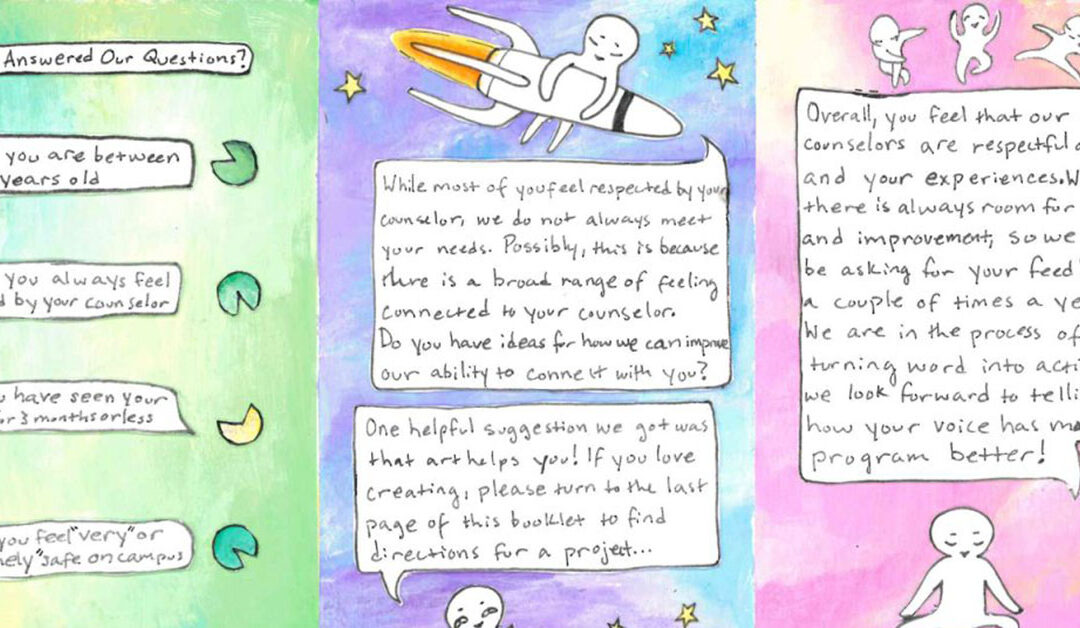 Answered Our Questions?
you are between
years old
you always feel
by your counselor
have seen your
3 months or less
you feel "very" or
safe on campus
While most of you feel respected by your
counselor, we do not always meet
your needs. Possibly, this is because
there is a broad range of feeling
connected to your counselor.
Do you have ideas for how we can improve
our ability to connect with you?
One helpful suggestion we got was
that art helps you! If you love
creating, please turn to the last
page of this booklet to find
directions for a project...
Overall, you feel that our
counselors are respectful
and your experiences. W
there is always room for
and improvement, so we
be asking for your feed
a couple of times a ye
We are in the process of
turning word into acti
we look forward to telli
how your voice has ma
program better!